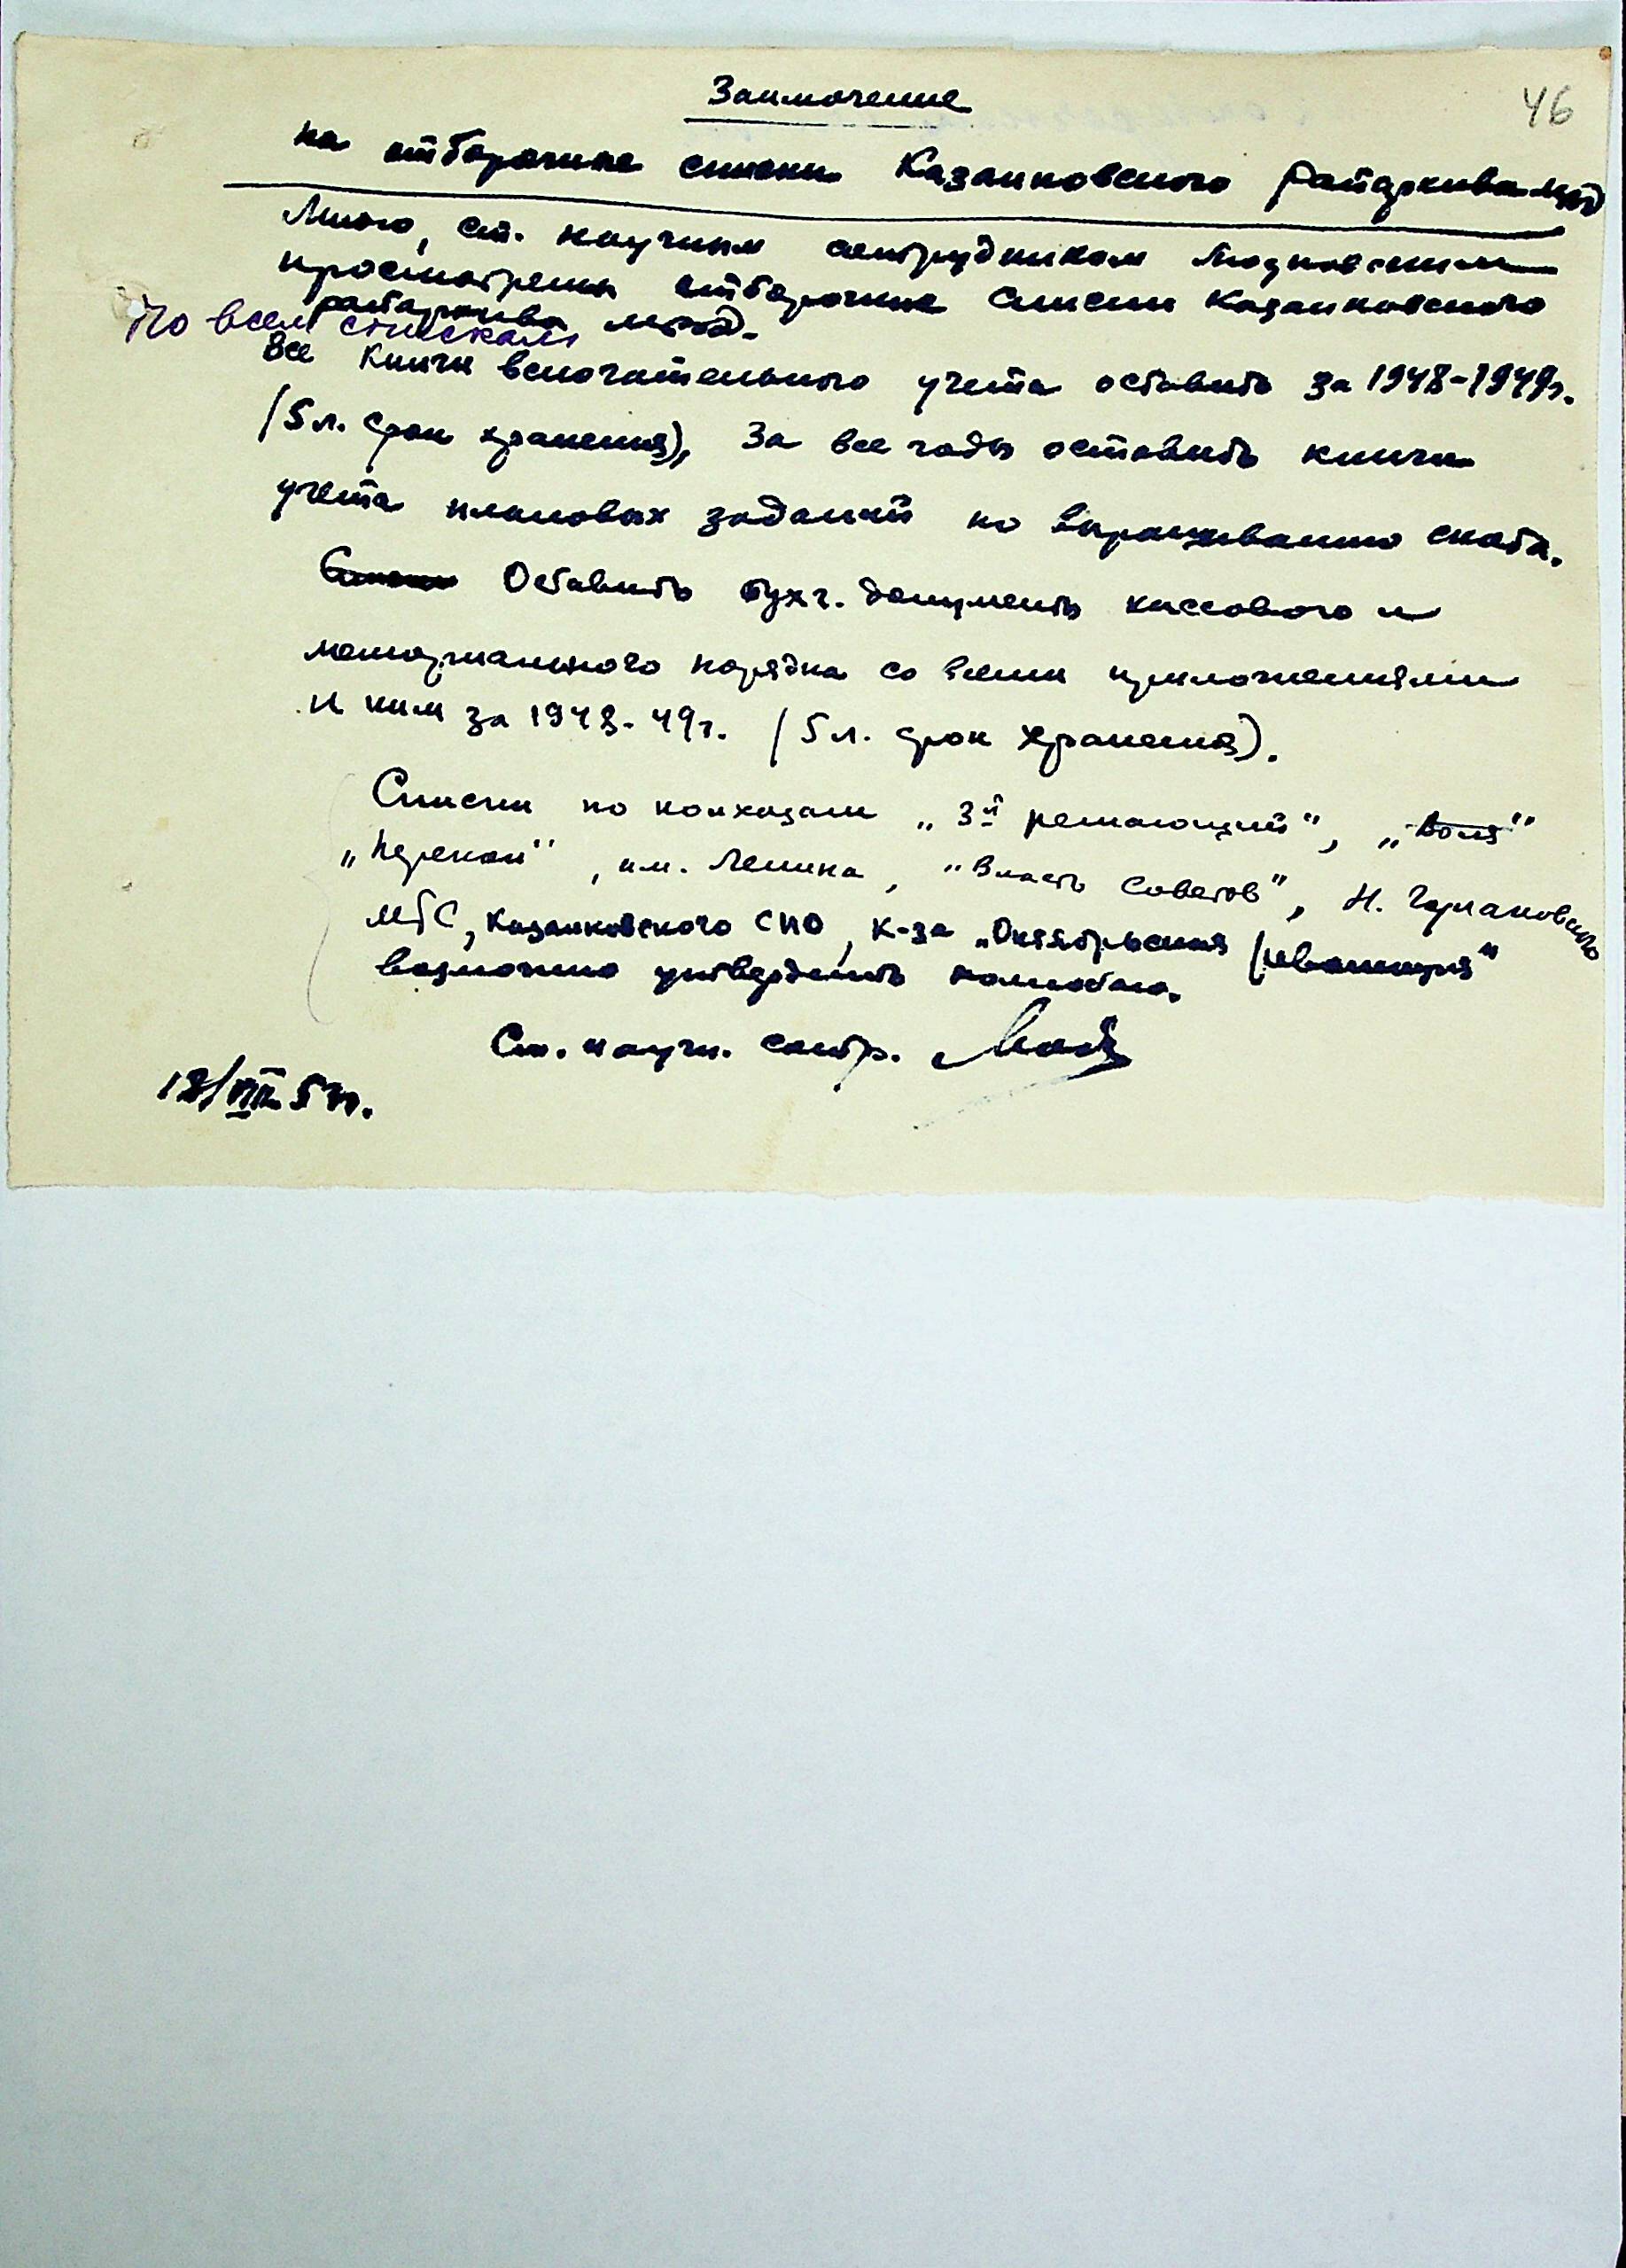 46
Заключение
на отборочные списки Казанковского райархива МВД
Мною, ст. научным сотрудником
просмотрены отборочные списки Казанковского
райархива МВД.
По всем спискам
Все книги вспогательного учета оставить за 1948-1949г.
(5 л. срок хранения), За все годы оставить книги
учета плановых заданий по выращиванию скота.
Оставить бухг. документы кассового и
мемориального порядка со всеми приложениями
к ним за 1948-49г. (5 л. срок хранения).
Списки по колхозам „3й решающий", „Воля"
„Перекоп", им. Ленина, "Власть Советов", Н.
МТС, Казанковского СПО, к-за „Октябрьская революция"
возможно утвердить полностью.
Ст. научн. сотр.
18/VIII 5